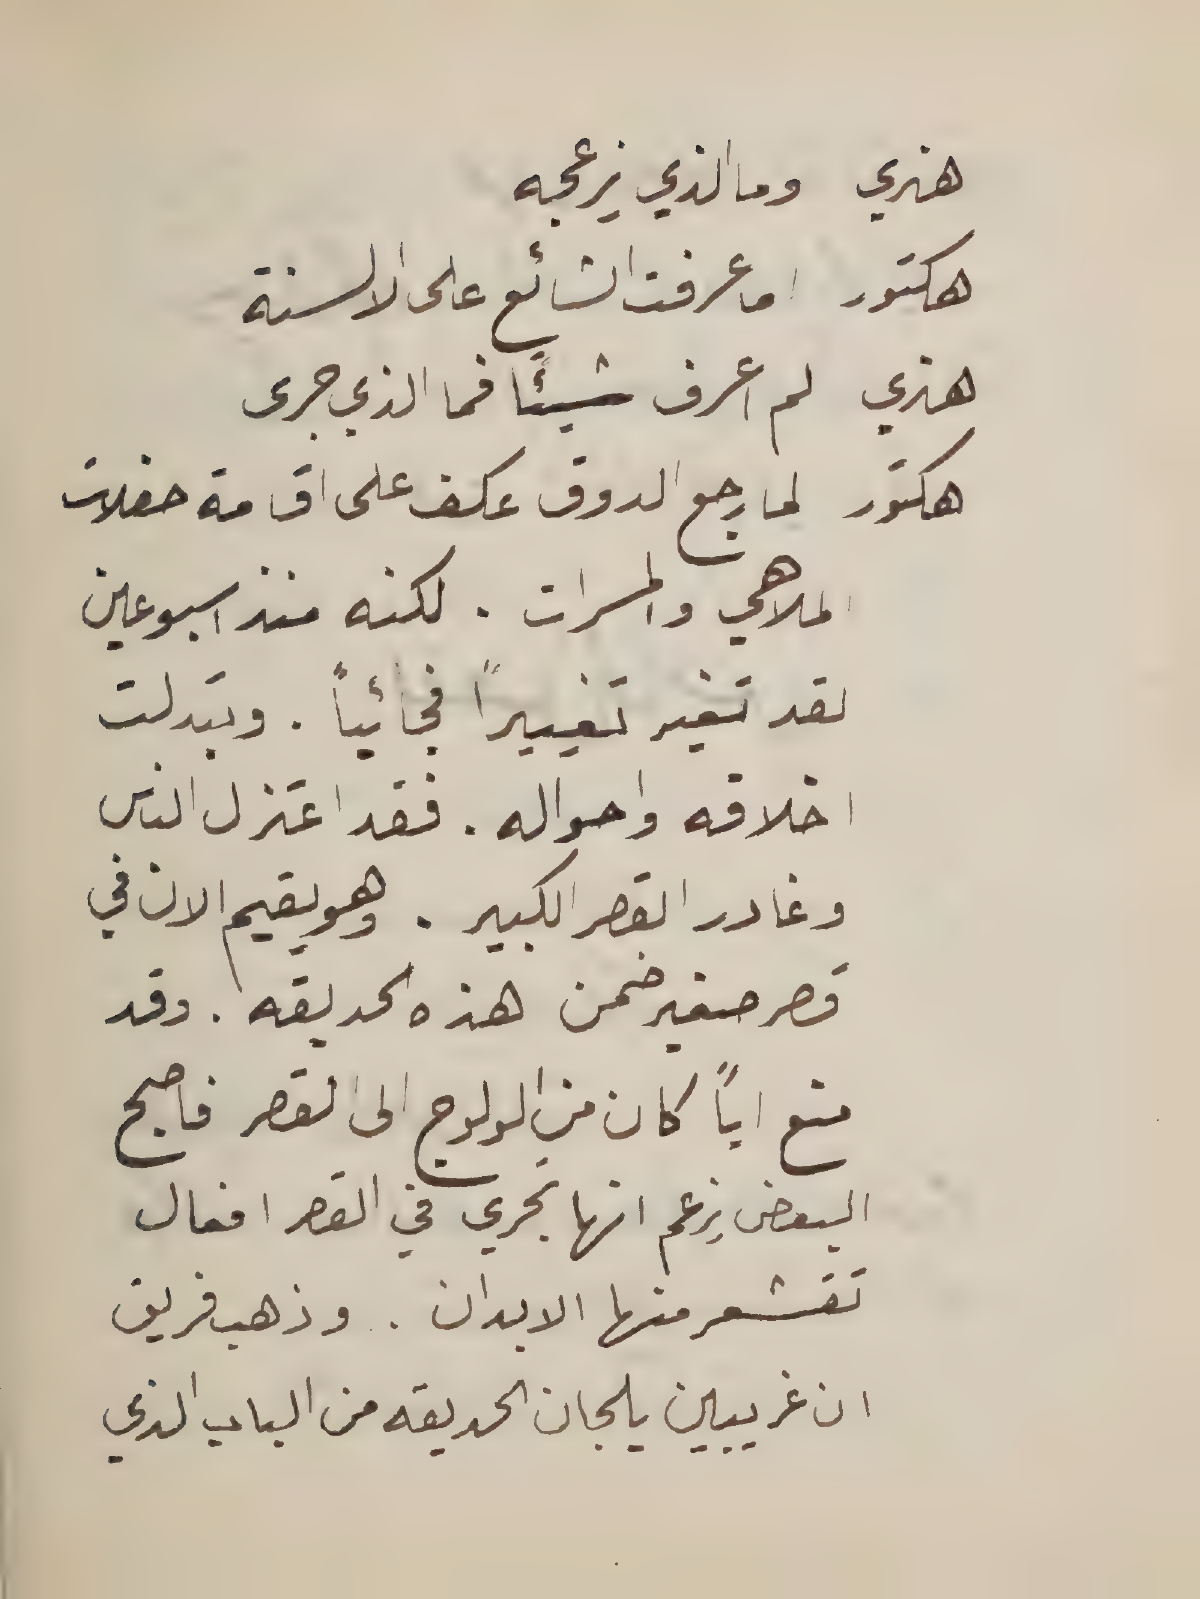 هنري وما الذي يزعجه
هكتور اما عرفت الشائع على الالسنة
هنري لم اعرف شيئًا فما الذي جرى
هكتور لما رجع الدوق عكف على اقامة حفلات
الملاهي والمسرات . لكنه منذ اسبوعين
لقد تغير تغييراً فجائياً . وتبدلت
اخلاقه واحواله . فقد اعتزل الناس
وغادر القصر الكبير . وهو يقيم الان في
قصر صغير ضمن هذه الحديقه . وقد
منع اياً كان من الولوج الى القصر فاصبح
البعض يزعم انها تجري في القصر افعال
تقشعر منها الابدان . وذهب فريق
ان غريبين يلجان الحديقه من الباب الذي